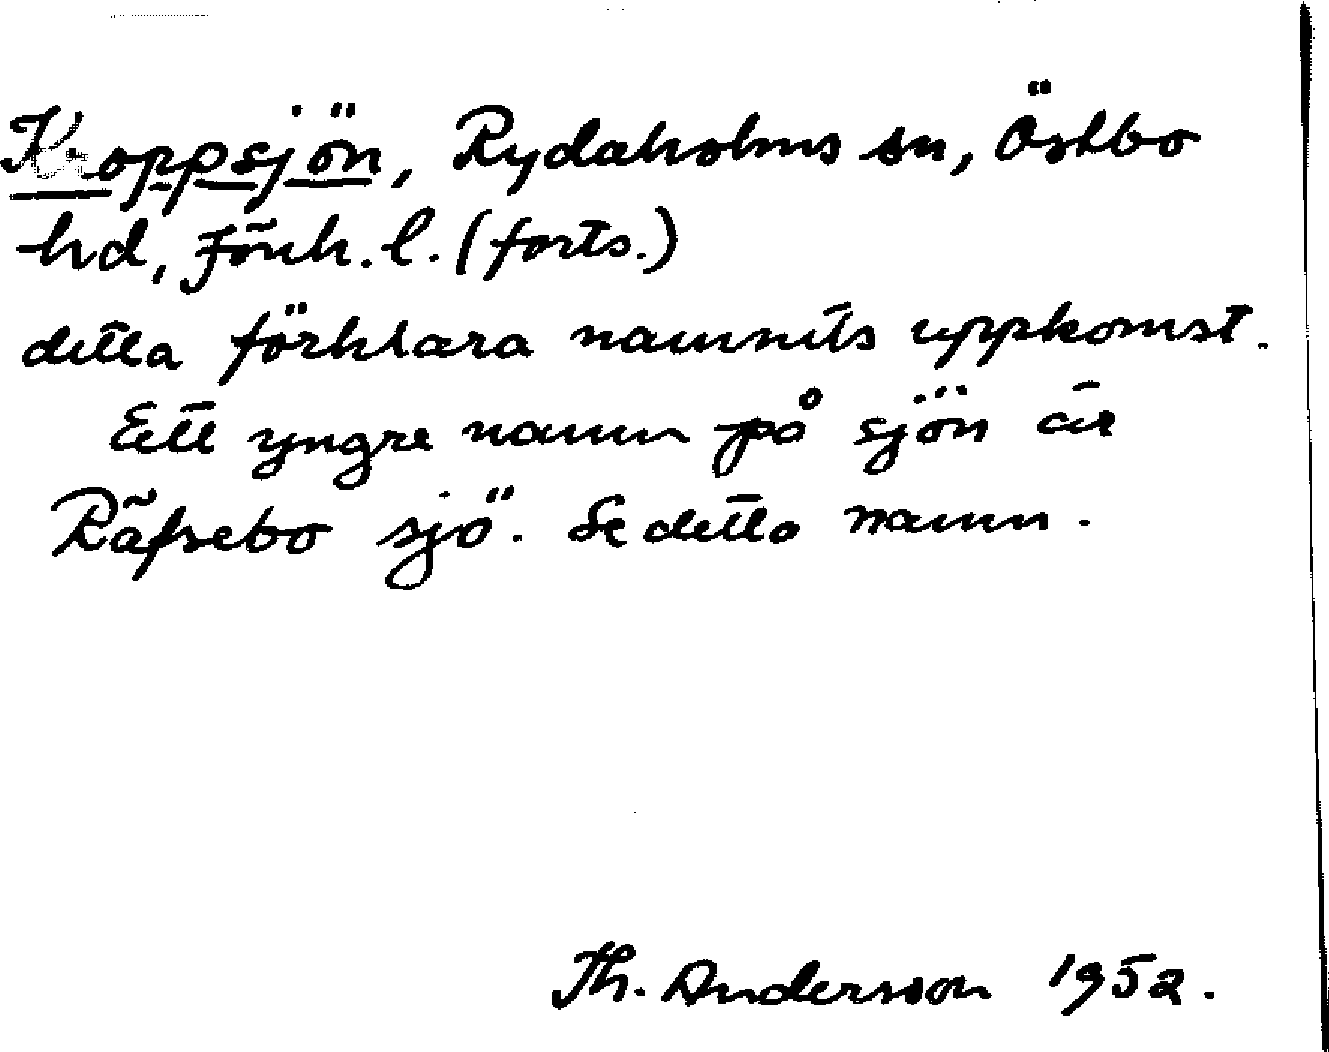 Kroppsjön, Rydaholms sn, Östbo
hd, Jönk. l. (forts.)
detta förklara namnets uppkomst.
Ett yngre namn på sjön är
Räfsebo sjö. Se detta namn.
Th. Andersson 1952.